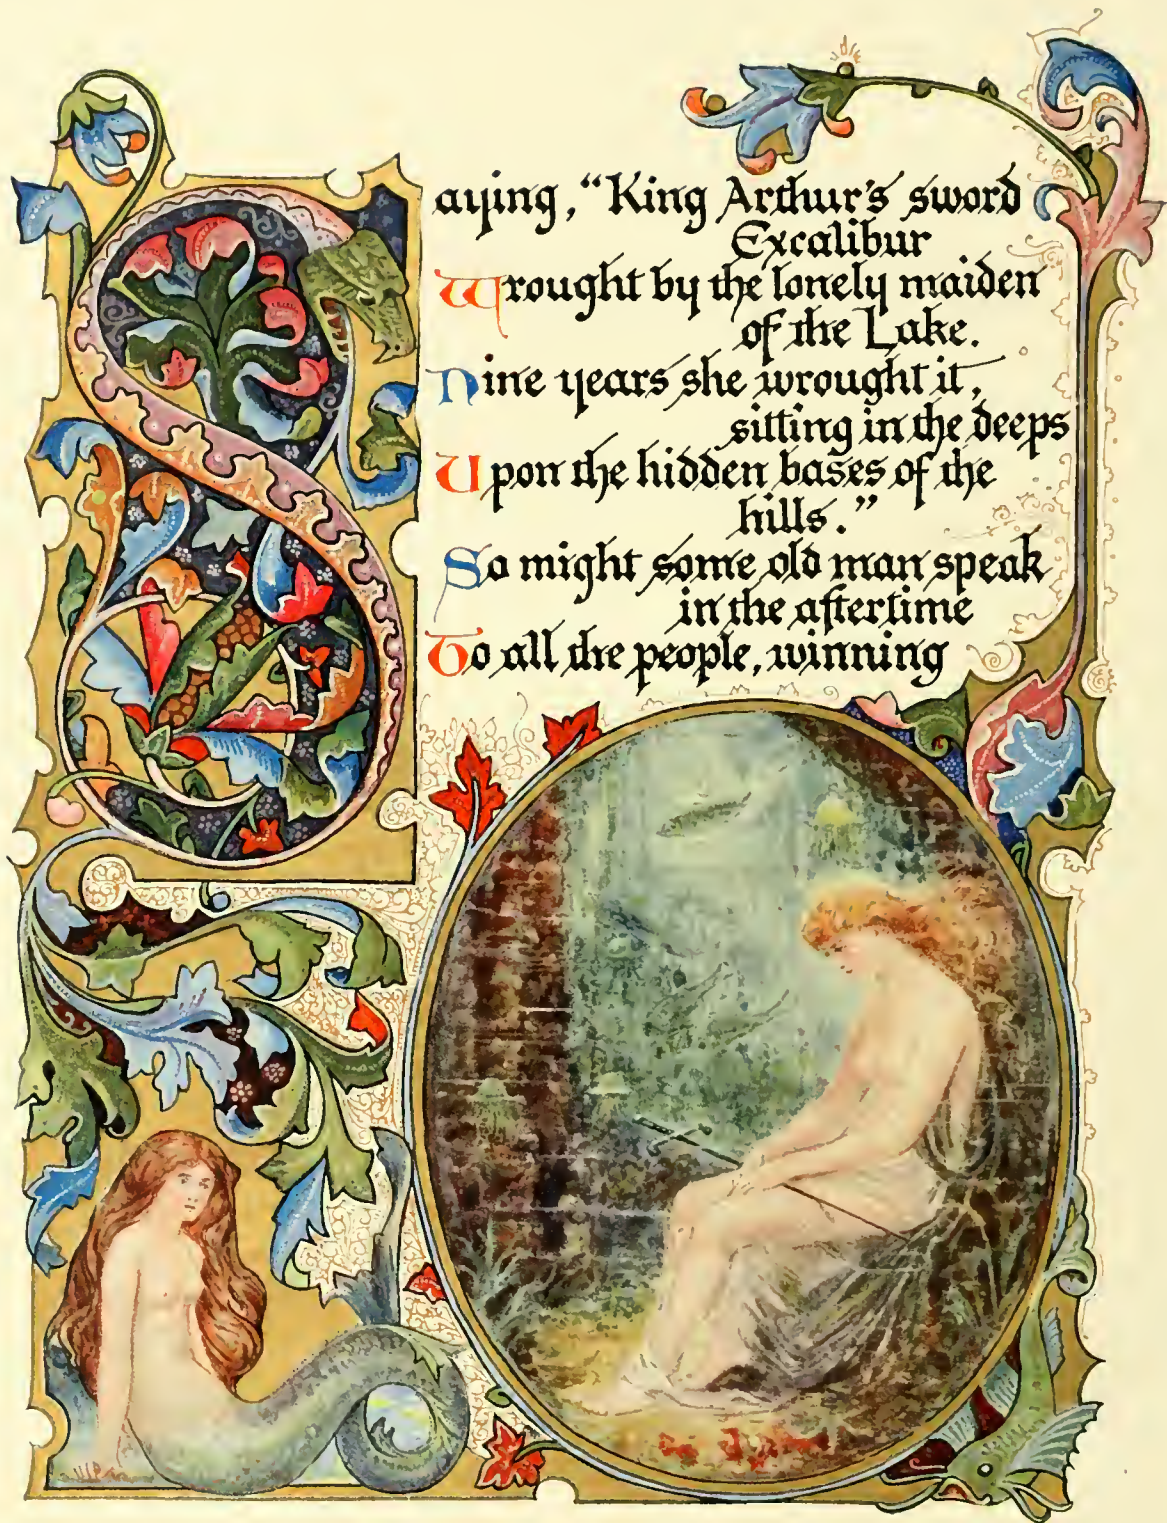 Saying, “King Arthur’s sword
Excalibur
Wrought by the lonely maiden
of the Lake.
Nine years she wrought it,
sitting in the deeps
Upon the hidden bases of the
hills.”
So might some old man speak
in the aftertime
To all the people, winning